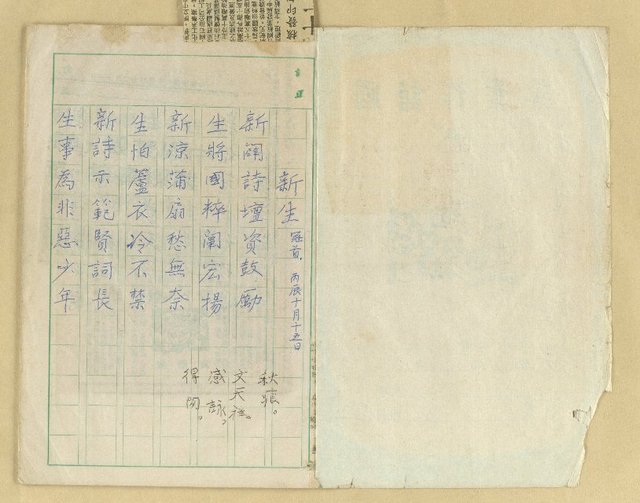 新生 冠首 丙辰十月十五日
新闢詩壇資鼓勵
生將國粹闡宏揚
新涼蒲扇愁無奈
生怕蘆衣冷不禁
新詩示範賢詞長
生事為非惡少年
秋痕。
文天祥。
感詠，
得閒。